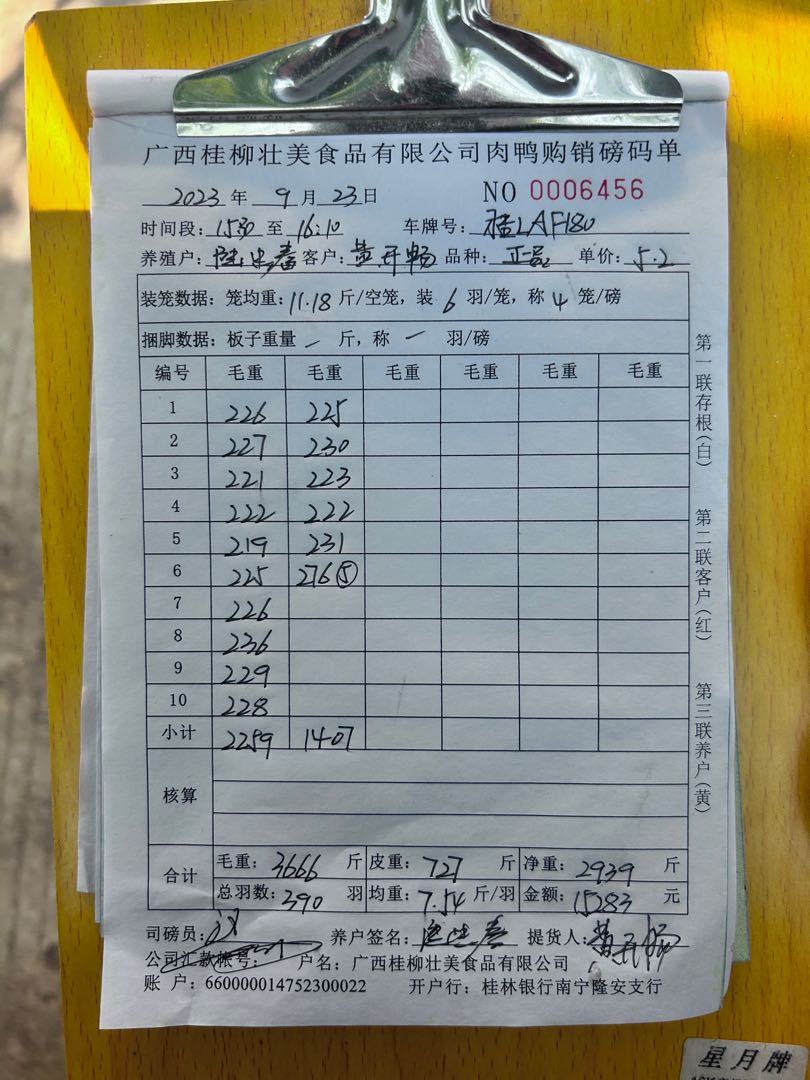 广西桂柳壮美食品有限公司肉鸭购销磅码单
2023 年 9 月 23 日 NO 0006456
时间段: 1530 至 16:10 车牌号: 桂LAF180
养殖户: 客户: 黄开畅 品种: 正品 单价: 5.2
装笼数据: 笼均重: 11.18 斤/空笼, 装 6 羽/笼, 称 4 笼/磅
捆脚数据: 板子重量 一 斤, 称 一 羽/磅
编号 毛重 毛重 毛重 毛重 毛重 毛重
1 226 225
2 227 230
3 221 223
4 222 222
5 219 231
6 225 276⑤
7 226
8 236
9 229
10 228
小计 2259 1407
核算
合计 毛重: 3666 斤 皮重: 727 斤 净重: 2939 斤
总羽数: 390 羽 均重: 7.54 斤/羽 金额: 15283 元
司磅员: 养户签名: 提货人: 黄开畅
公司汇款帐号: 户名: 广西桂柳壮美食品有限公司
账 户: 660000014752300022 开户行: 桂林银行南宁隆安支行
第一联存根(白)
第二联客户(红)
第三联养户(黄)
星月牌